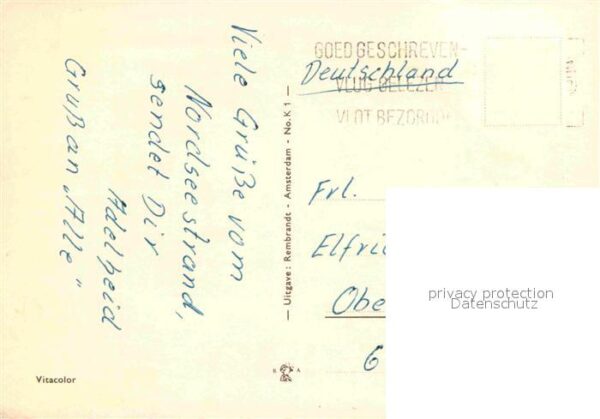 Viele Grüße vom
Nordseestrand,
sendet Dir
Adelheid
Gruß an „Alle"
Uitgave: Rembrandt - Amsterdam - No. K 1
GOED GESCHREVEN-
VLUG GELEZEN
VLOT BEZORGD
Deutschland
Frl.
Elfri
Obe
6
privacy protection
Datenschutz
R A
Vitacolor